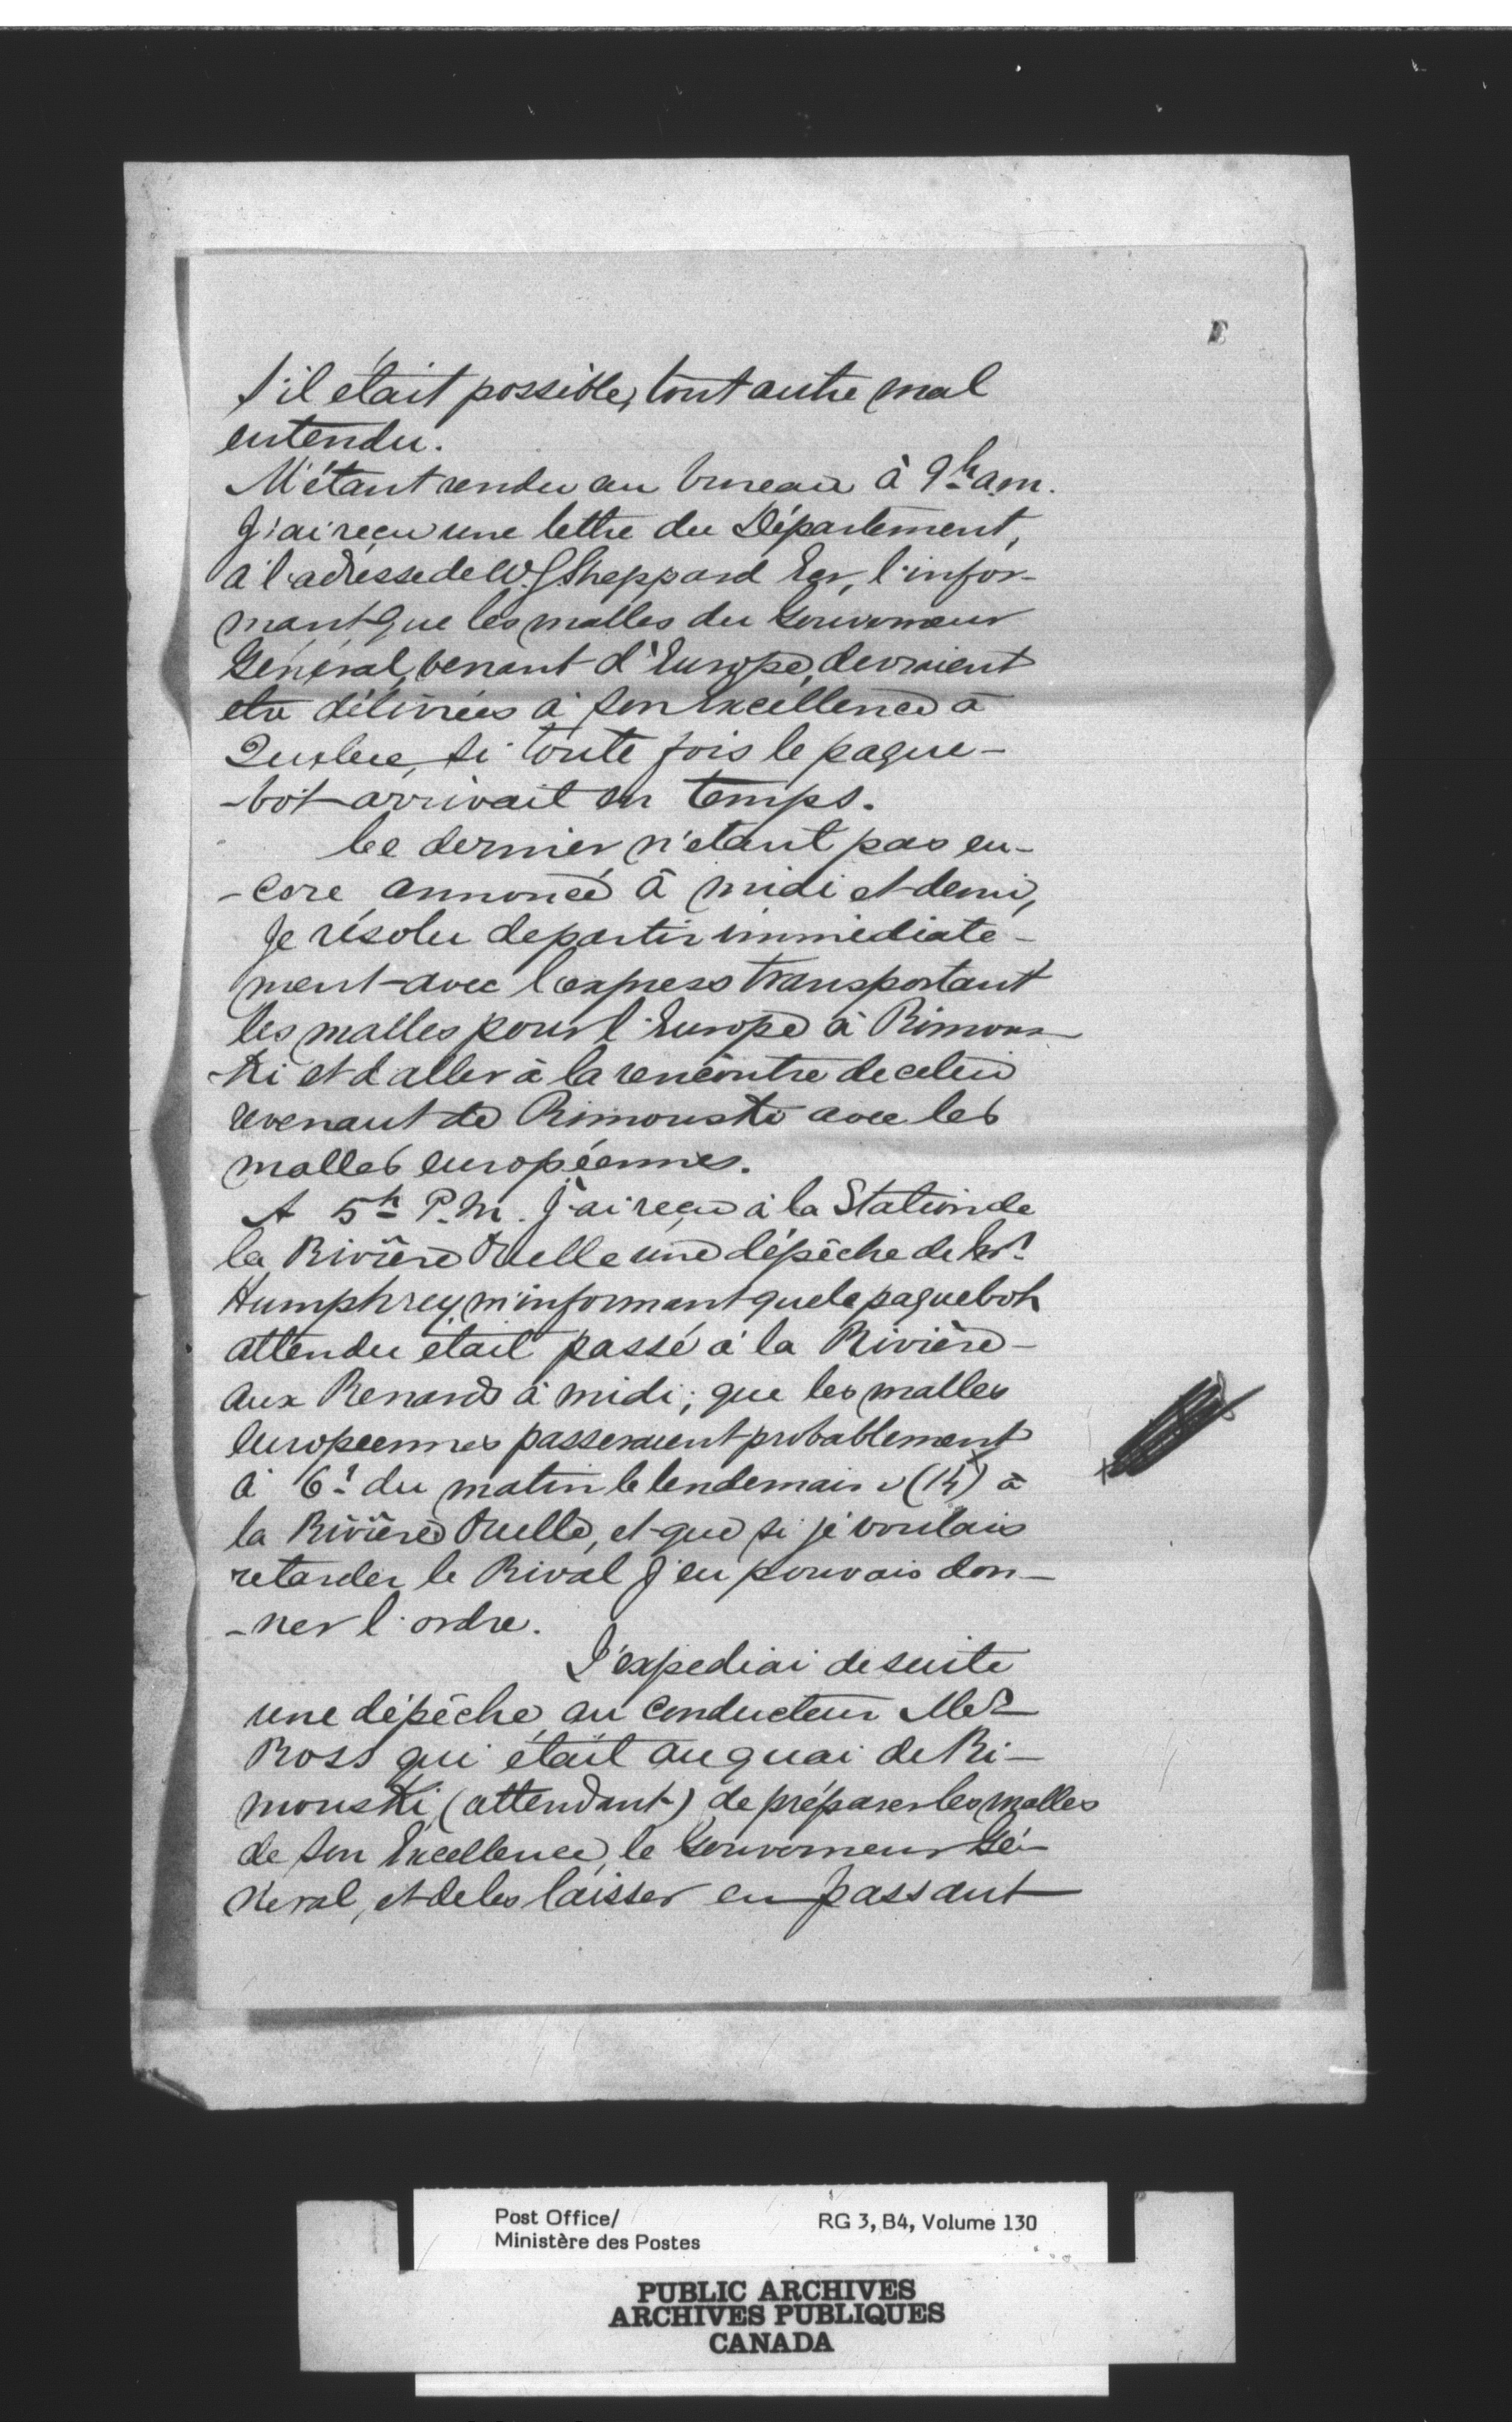 s'il était possible, tout autre mal
entendu.
M'étant rendu au bureau à 9h a.m.
J'ai reçu une lettre du Département,
à l'adresse de W. G Sheppard Ecr, l'infor-
mant que les malles du Gouverneur
Général, venant d'Europe, devraient
etre délivrées à Son Excellence à
Quebec, si toute fois le paque-
-bot arrivait en temps.
Ce dernier n'etant pas en-
-core annoncé à midi et demi,
Je résolu de partir immédiate-
ment avec l'express transportant
les malles pour l'Europe à Rimous-
-ki et d'aller à la rencontre de celui
revenant de Rimouski avec les
malles européennes.
A 5h P.M. J'ai reçu à la Station de
la Rivière Ouelle une dépêche de Mr.
Humphrey, m'informant que le paquebot
attendu était passé à la Rivière-
aux Renards à midi; que les malles
européennes passeraient probablement
à 6h du matin le lendemain (14) à
la Rivière Ouelle, et que si je voulais
retarder le Rival j'en pouvais don-
-ner l'ordre.
J'expediai de suite
une dépêche au conducteur Mr
Ross qui était au quai de Ri-
mouski (attendant) de préparer les malles
de Son Excellence, le Gouverneur Gé-
néral, et de les laisser en passant
Post Office/
Ministère des Postes
RG 3, B4, Volume 130
PUBLIC ARCHIVES
ARCHIVES PUBLIQUES
CANADA